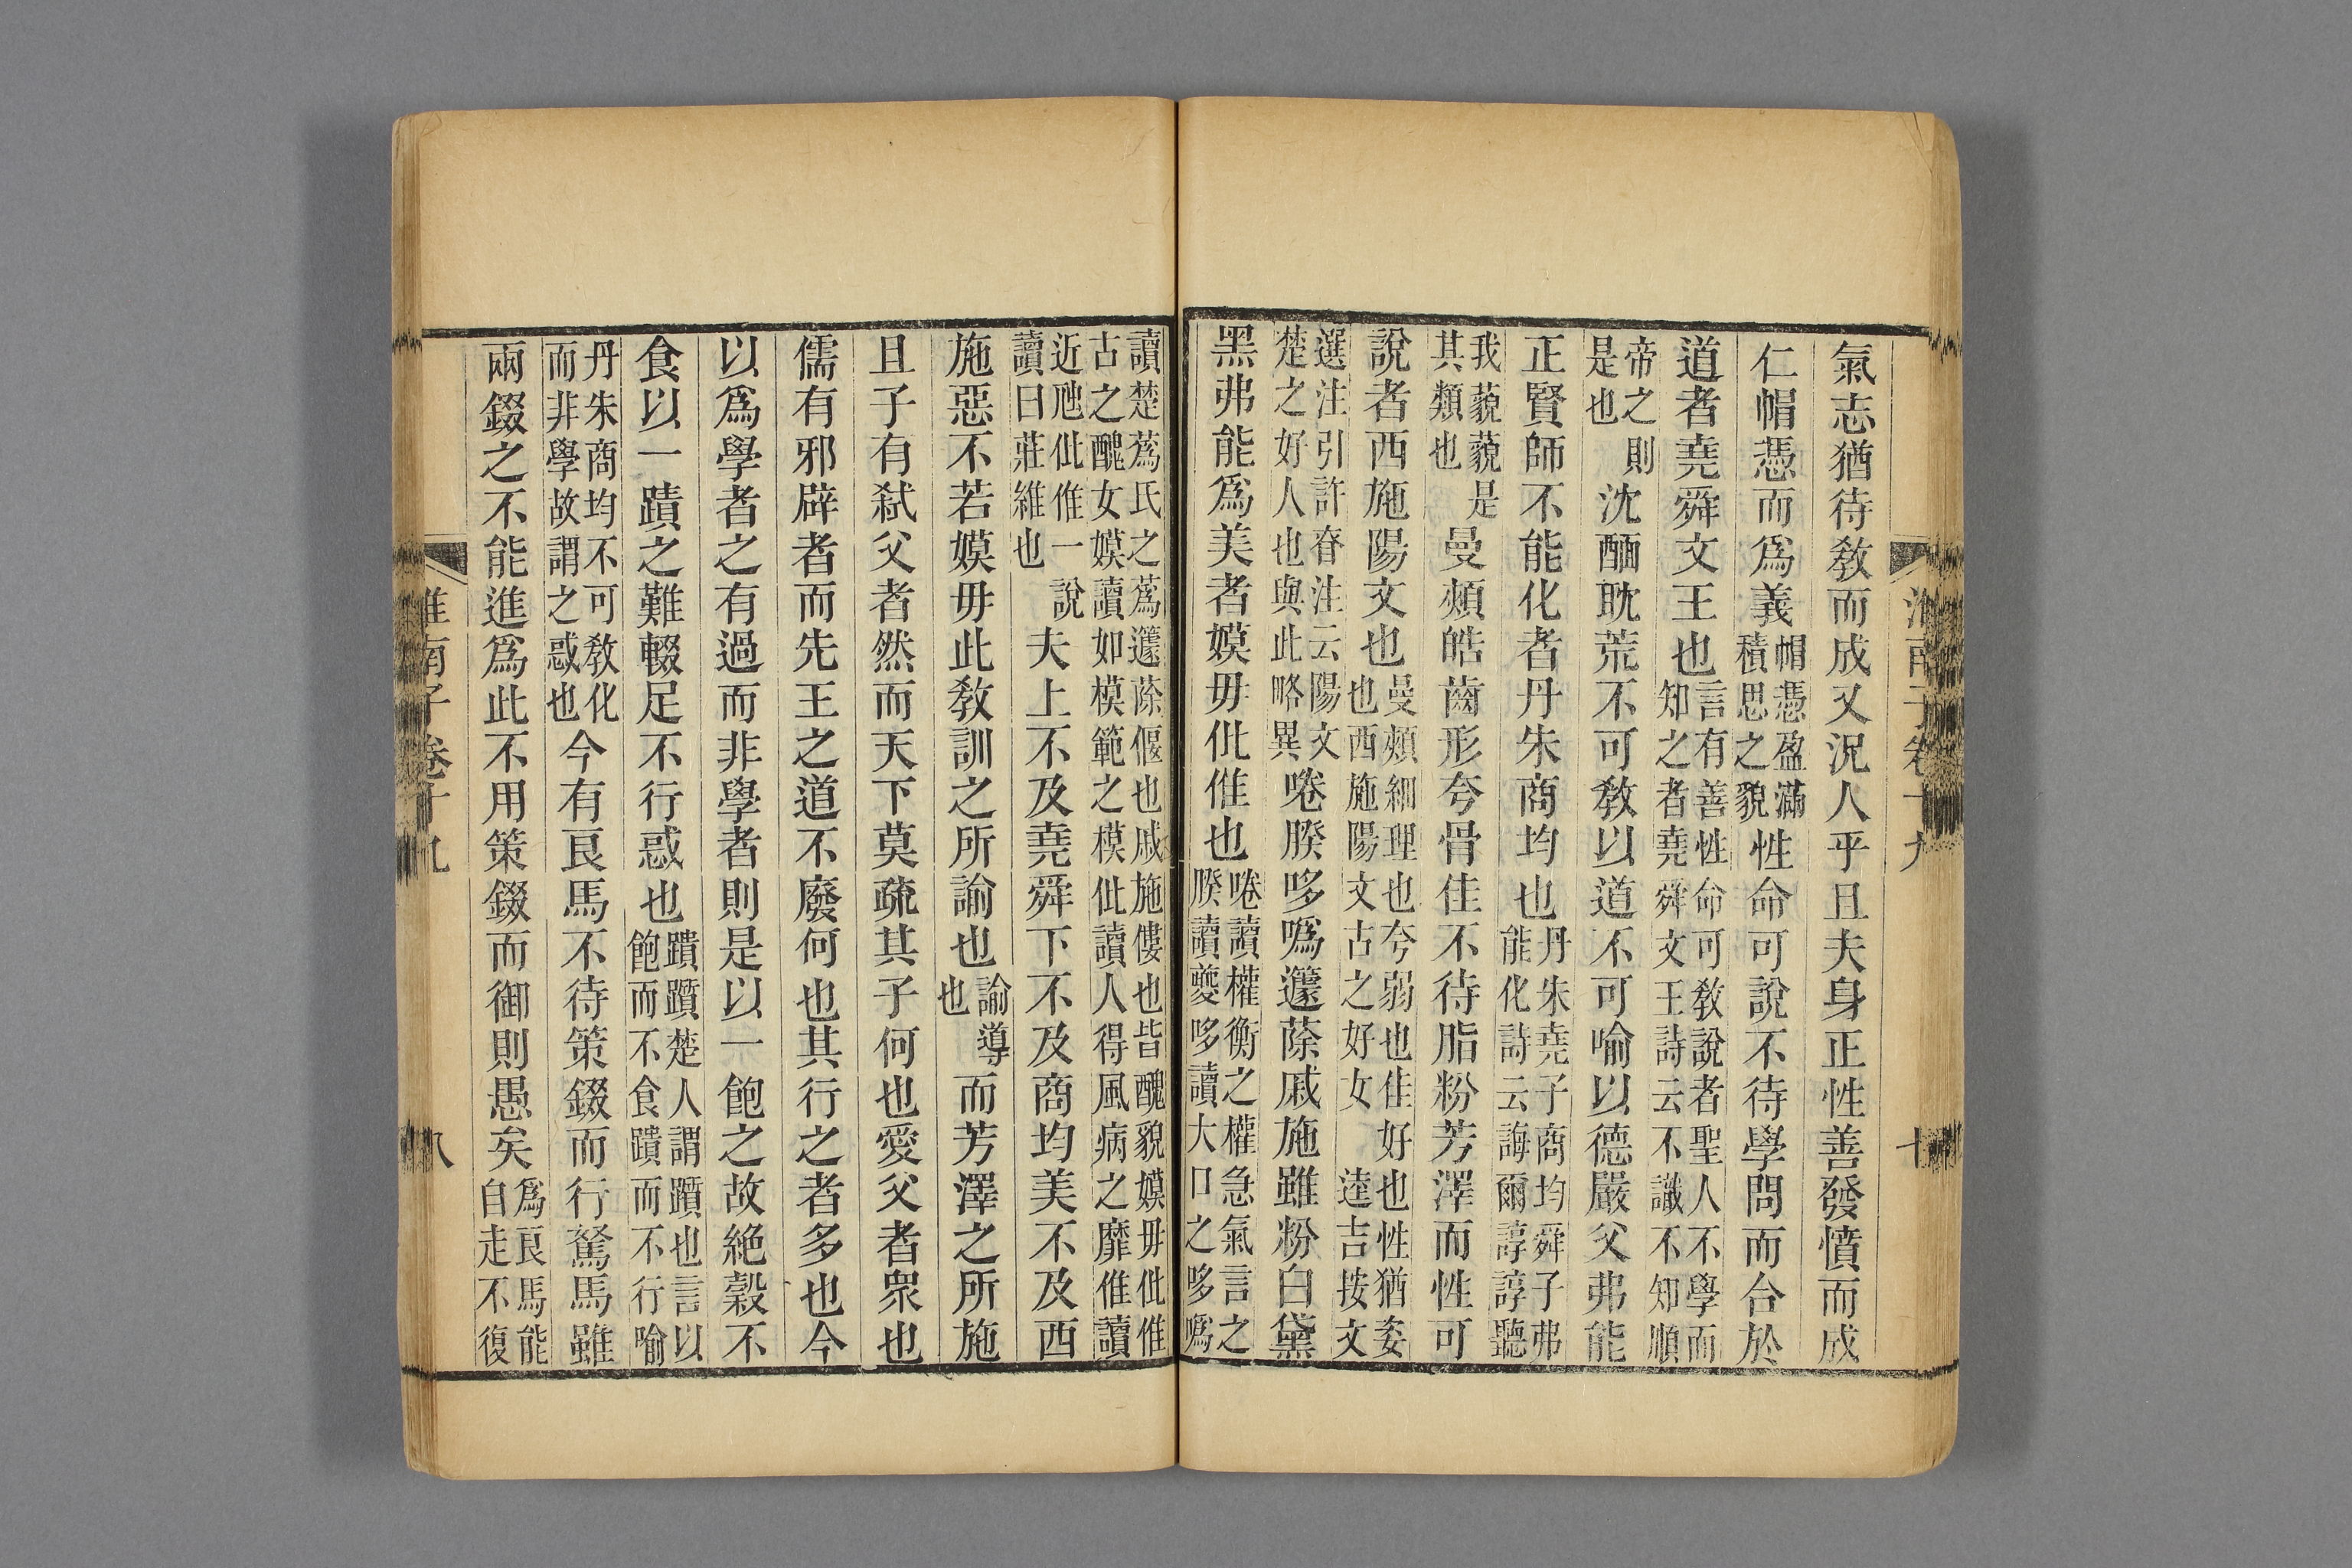 淮南子卷十九 十
氣志猶待敎而成又況人乎且夫身正性善發憤而成
仁帽憑而爲義帽憑盈滿積思之貌性命可說不待學問而合於
道者堯舜文王也言有善性命可敎說者聖人不學而知之者堯舜文王詩云不識不知順
帝之則是也沈酗耽荒不可敎以道不可喻以德嚴父弗能
正賢師不能化者丹朱商均也丹朱堯子商均舜子弗能化詩云誨爾諄諄聽
我藐藐是其類也曼頰皓齒形夸骨佳不待脂粉芳澤而性可
說者西施陽文也曼頰細理也夸弱也佳好也性猶姿也西施陽文古之好女 逵吉按文
選注引許眘注云陽文楚之好人也與此略異啳脥哆噅籧蒢戚施雖粉白黛
黑弗能爲美者嫫毋仳倠也啳讀權衡之權急氣言之脥讀夔哆讀大口之哆噅
讀楚蔿氏之蔿籧蒢偃也戚施僂也皆醜貌嫫毋仳倠古之醜女嫫讀如模範之模仳讀人得風病之靡倠讀
近虺仳倠一說讀曰莊維也夫上不及堯舜下不及商均美不及西
施惡不若嫫毋此敎訓之所諭也諭導也而芳澤之所施
且子有弑父者然而天下莫疏其子何也愛父者眾也
儒有邪辟者而先王之道不廢何也其行之者多也今
以爲學者之有過而非學者則是以一飽之故絶穀不
食以一蹟之難輟足不行惑也蹟躓楚人謂躓也言以飽而不食蹟而不行喻
丹朱商均不可敎化而非學故謂之惑也今有良馬不待策錣而行駑馬雖
兩錣之不能進爲此不用策錣而御則愚矣爲良馬能自走不復
淮南子卷十九 八